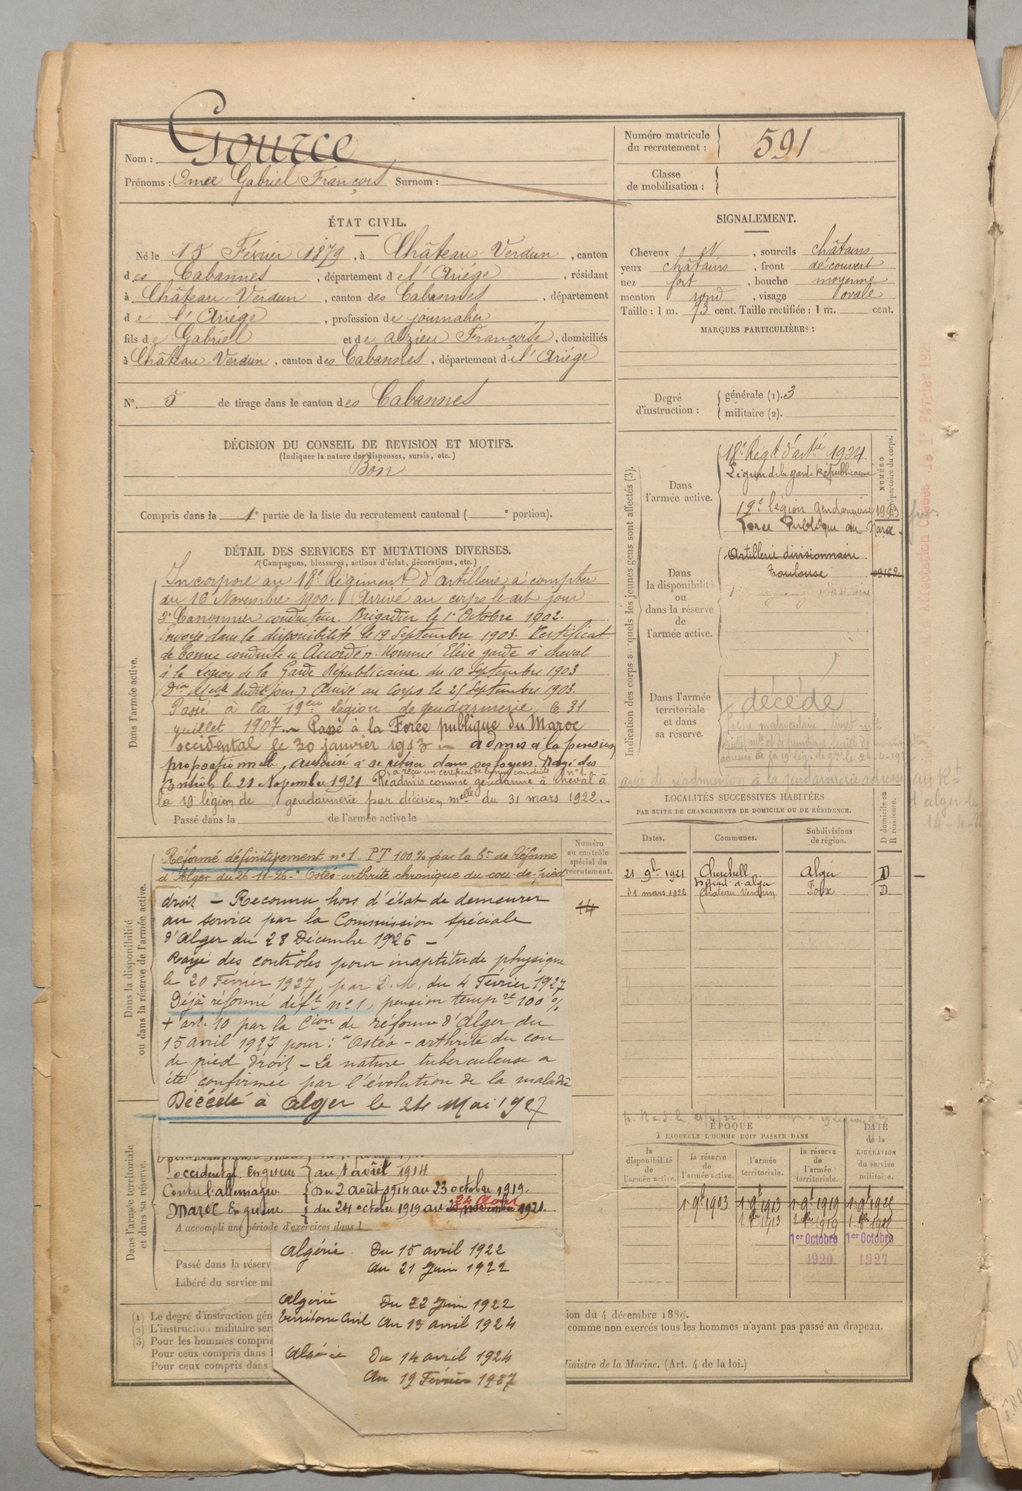 Nom : Gource
Prénoms : Omer Gabriel François Surnom :
Numéro matricule du recrutement : 591
Classe de mobilisation :
ÉTAT CIVIL.
Né le 15 Février 1879, à Château Verdun, canton
des Cabannes, département de l'Ariège, résidant
à Château Verdun, canton des Cabannes, département
de l'Ariège, profession de journalier
fils de Gabriel et de Alzieu Françoise, domiciliés
à Château Verdun, canton des Cabannes, département de l'Ariège
N° 5 de tirage dans le canton des Cabannes
SIGNALEMENT.
Cheveux et sourcils châtains
yeux châtains, front découvert
nez fort, bouche moyenne
menton rond, visage ovale
Taille : 1 m. 73 cent. Taille rectifiée : 1 m. cent.
MARQUES PARTICULIÈRES :
Degré d'instruction : générale (1). 3
militaire (2).
DÉCISION DU CONSEIL DE REVISION ET MOTIFS.
(Indiquer la nature des dispenses, sursis, etc.)
Bon
Compris dans la 1e partie de la liste du recrutement cantonal ( e portion).
DÉTAIL DES SERVICES ET MUTATIONS DIVERSES.
(Campagnes, blessures, actions d'éclat, décorations, etc.)
Dans l'armée active.
Incorporé au 18e Régiment d'artillerie à compter
du 16 Novembre 1900. Arrivé au corps le dit jour
2e Canonnier conducteur. Brigadier le 1er Octobre 1902.
Envoyé dans la disponibilité le 19 Septembre 1903. Certificat
de bonne conduite Accordé. Nommé Elève garde à cheval
à la légion de la Garde Républicaine du 10 Septembre 1903
Arrivé au corps le 25 Septembre 1903.
Passé à la 19eme légion de gendarmerie le 31
juillet 1907. Passé à la Force publique du Maroc
occidental le 20 janvier 1913 admis à la pension
proportionnelle, autorisé à se retirer dans ses foyers. Rayé des
Contrôles le 21 Novembre 1921 Réadmis comme gendarme à cheval à
la 19 légion de gendarmerie par décision melle du 31 mars 1922.
Passé dans la de l'armée active le
Indication des corps auxquels les jeunes gens sont affectés (3).
NUMÉRO
Dans l'armée active.
18e Régt d'artie 1924
Légion de la garde Républicaine
19e légion gendarmerie
Force Publique du Maroc
Dans la disponibilité ou dans la réserve de l'armée active.
Artillerie divisionnaire
Toulouse
Dans l'armée territoriale et dans sa réserve.
décédé
LOCALITÉS SUCCESSIVES HABITÉES
PAR SUITE DE CHANGEMENTS DE DOMICILE OU DE RÉSIDENCE.
Dates. Communes. Subdivisions de région. D domicile ou R résidence.
21 9bre 1921 Cherchell Alger D
31 mars 1922 Château Verdun Foix D
Numéro au contrôle spécial du recrutement.
Dans la disponibilité ou dans la réserve de l'armée active.
Réformé définitivement n° 1 PT 100% par la Con de Réforme
d'Alger du 26-11-26 Ostéo-arthrite chronique du cou-de-pied
droit – Reconnu hors d'état de demeurer
au service par la Commission spéciale
d'Alger du 28 Décembre 1926 –
Rayé des contrôles pour inaptitude physique
le 20 Février 1927, par D.M. du 4 Février 1927
Déjà réformé déft n° 1, pension tempre 100%
+ art. 10 par la Cion de réforme d'Alger du
15 avril 1927 pour : "Ostéo-arthrite du cou
de pied droit – La nature tuberculeuse a
été confirmée par l'évolution de la maladie
Décédé à Alger le 24 Mai 1927
Dans l'armée territoriale et dans sa réserve.
occidental En guerre au 1er août 1914
Contre l'allemagne Du 2 août 1914 au 23 octobre 1919.
Maroc En guerre du 24 octobre 1919 au 1921.
A accompli une période d'exercices dans l
Passé dans la réserv
Libéré du service mi
Algérie Du 15 avril 1922
au 21 Juin 1922
Algérie Du 22 Juin 1922
Territoire Civil Au 13 avril 1924
Algérie Du 14 avril 1924
Au 19 Février 1927
ÉPOQUE
À LAQUELLE L'HOMME DOIT PASSER DANS
la disponibilité de l'armée active. la réserve de l'armée active. l'armée territoriale. la réserve de l'armée territoriale.
DATE de la LIBÉRATION du service militaire.
1er Octobre 1920
1er Octobre 1927
(1) Le degré d'instruction gén
(2) L'instruction militaire ser
(3) Pour les hommes compris
Pour ceux compris dans
Pour ceux compris dans
ion du 4 décembre 1886.
comme non exercés tous les hommes n'ayant pas passé au drapeau.
inistre de la Marine. (Art. 4 de la loi.)